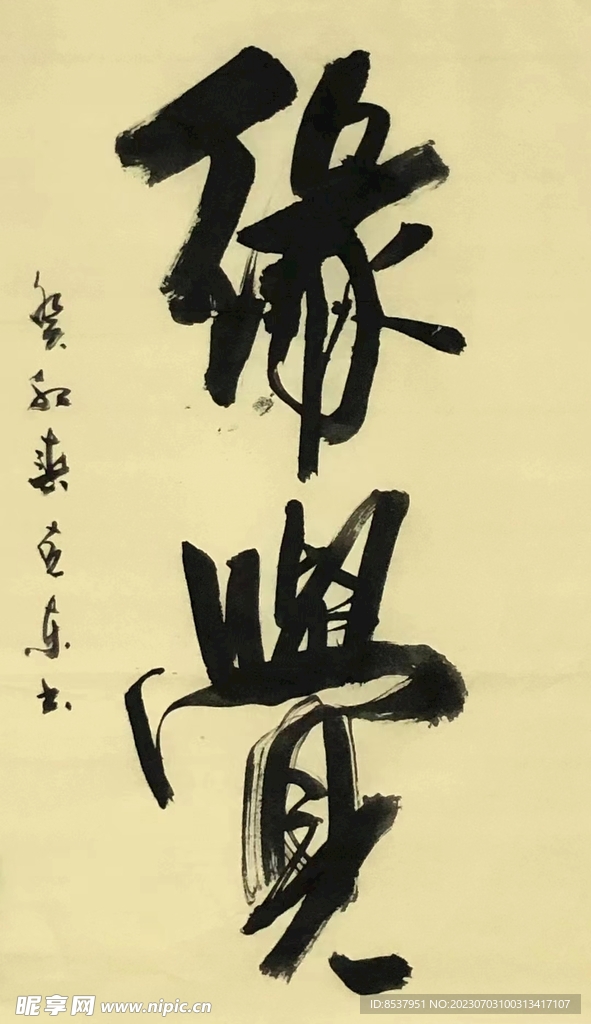 緣覺
癸卯春
书
昵享网 www.nipic.cn
ID:8537951 NO:20230703100313417107